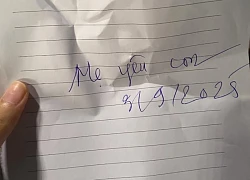 Mẹ yêu con
3/9/2025